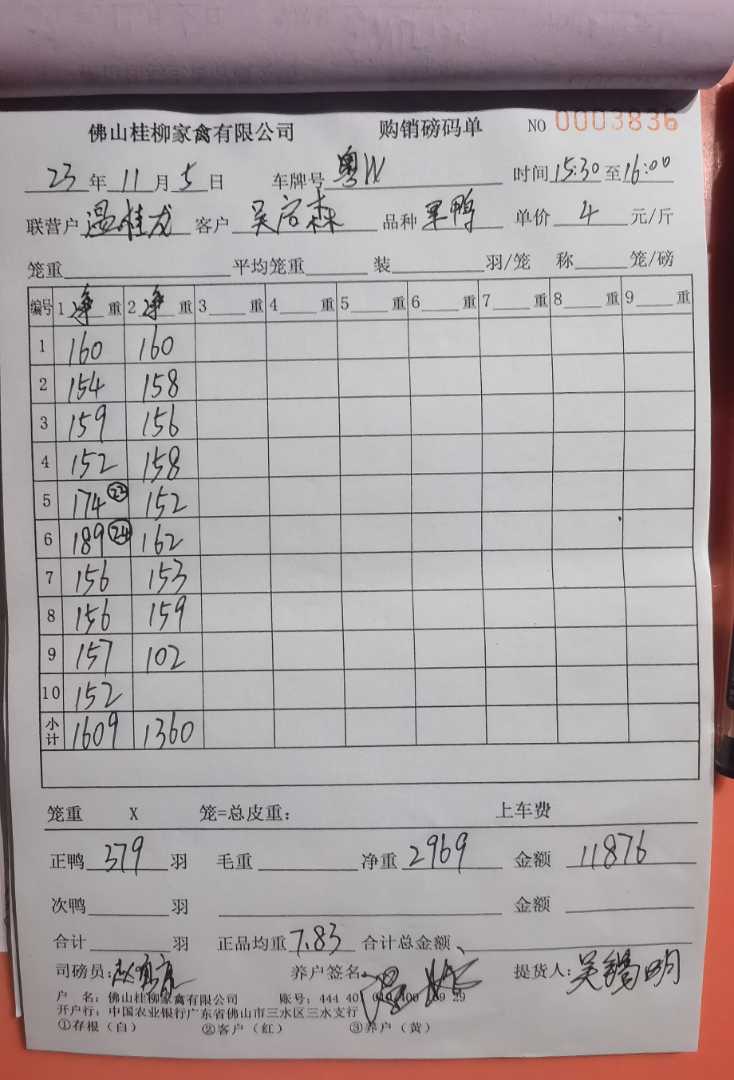 佛山桂柳家禽有限公司 购销磅码单 NO 0003836
23 年 11 月 5 日 车牌号 粤W 时间 15:30 至 16:00
联营户 温桂龙 客户 吴富森 品种 旱鸭 单价 4 元/斤
笼重 平均笼重 装 羽/笼 称 笼/磅
编号 1 净 重 2 净 重 3 重 4 重 5 重 6 重 7 重 8 重 9 重
1 160 160
2 154 158
3 159 156
4 152 158
5 174 ㉓ 152
6 189 ㉔ 162
7 156 153
8 156 159
9 157 102
10 152
小计 1609 1360
笼重 X 笼=总皮重: 上车费
正鸭 379 羽 毛重 净重 2969 金额 11876
次鸭 羽 金额
合计 羽 正品均重 7.83 合计总金额
司磅员: 养户签名 提货人: 吴锡明
户 名: 佛山桂柳家禽有限公司 账号: 444 40 29
开户行: 中国农业银行广东省佛山市三水区三水支行
①存根（白） ②客户（红） ③养户（黄）